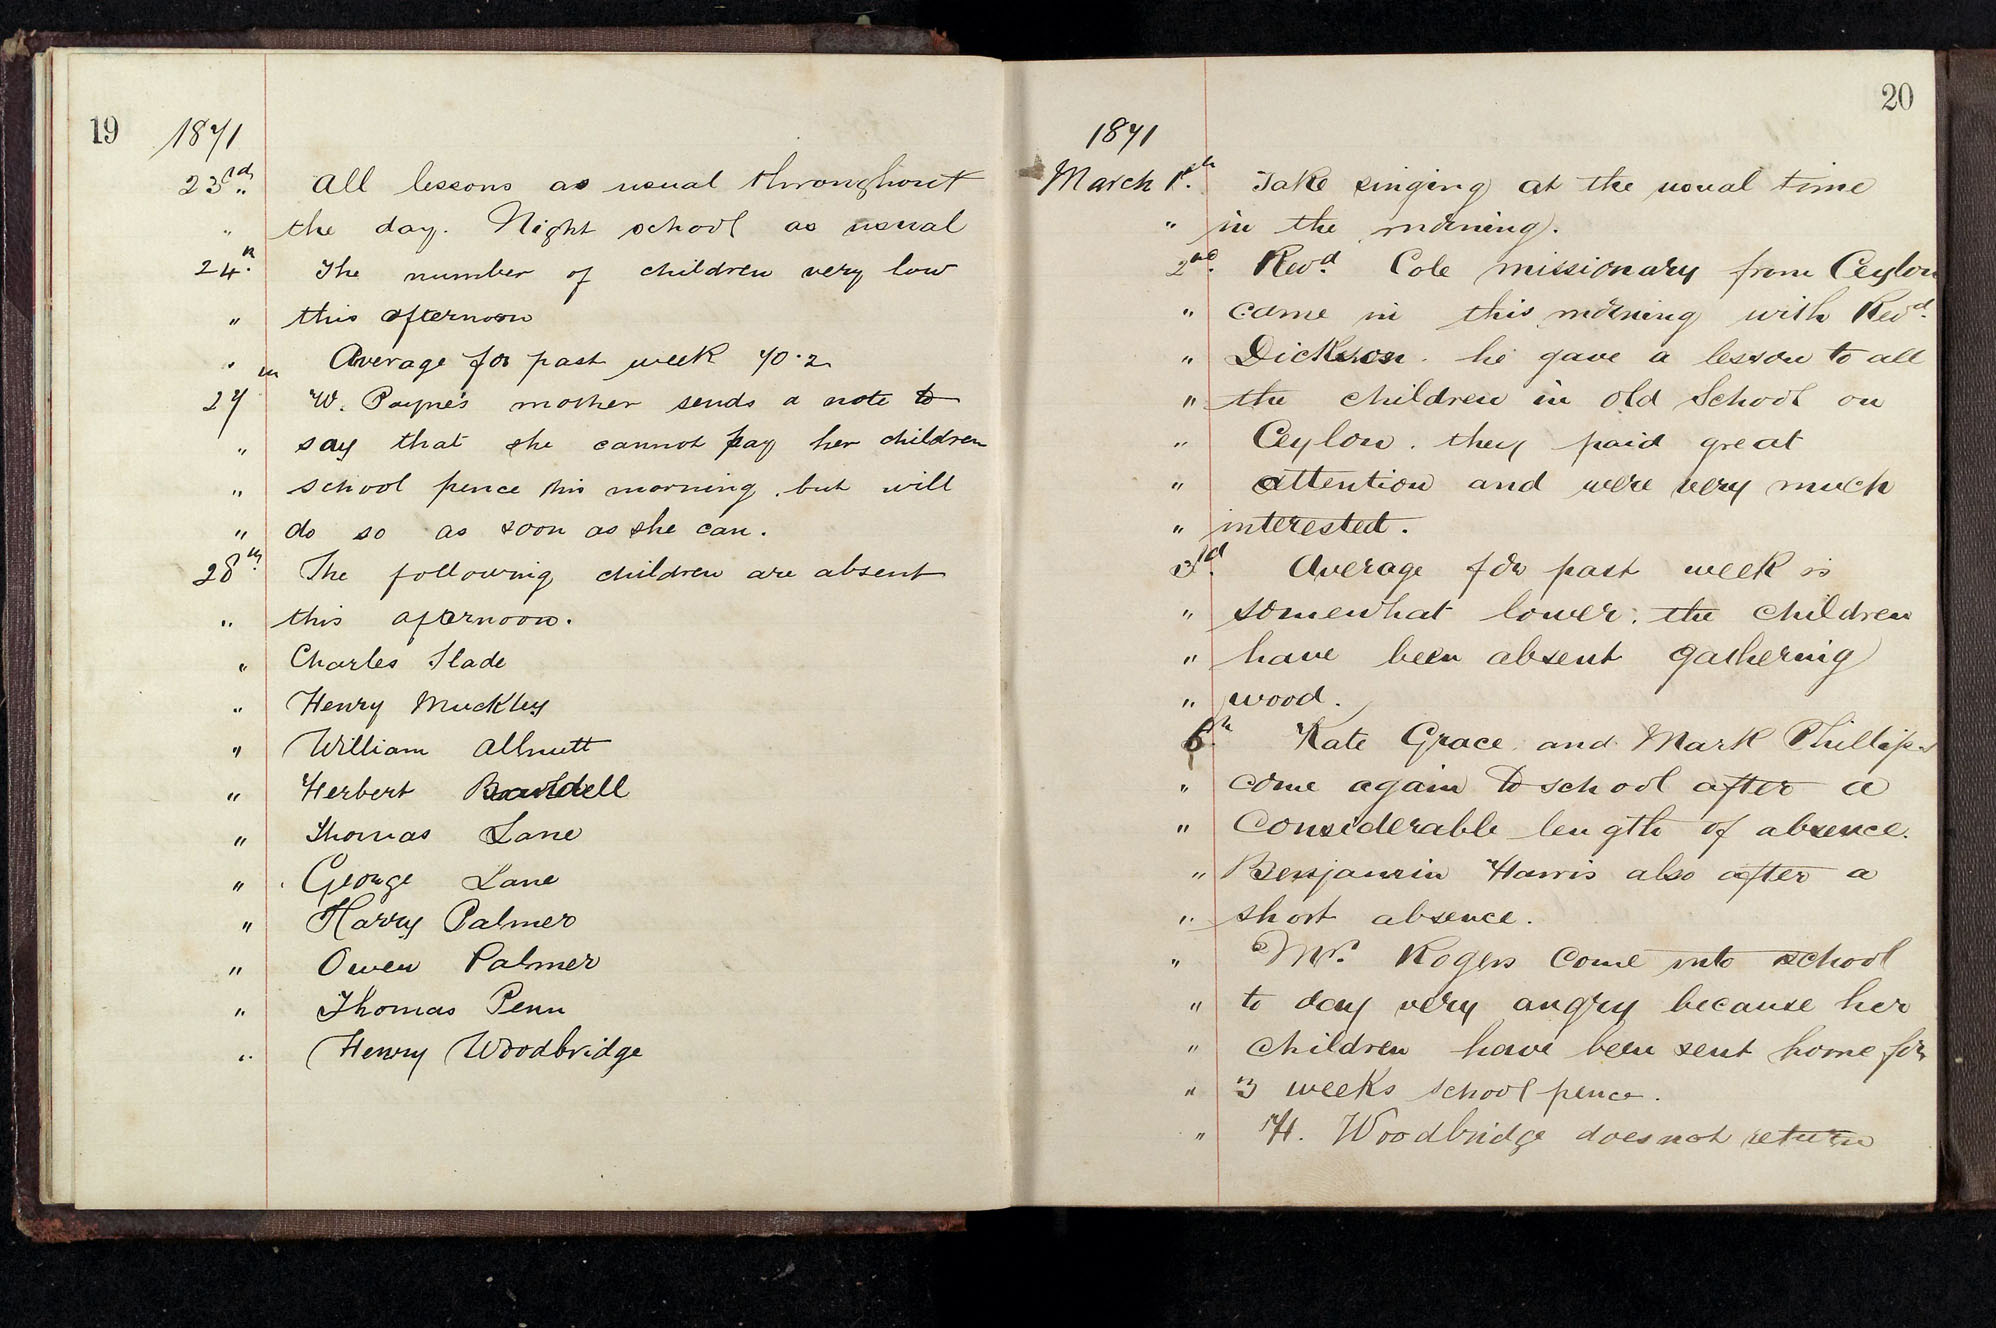 19
1871
23rd. All lessons as usual throughout
" the day. Night school as usual
24th. The number of children very low
" this afternoon
" Average for past week 70.2
27th W. Payne's mother sends a note to
" say that she cannot pay her children
" school pence this morning, but will
" do so as soon as she can.
28th The following children are absent
" this afternoon.
" Charles Slade
" Henry Muckley
" William Allnutt
" Herbert
" Thomas Lane
" George Lane
" Harry Palmer
" Owen Palmer
" Thomas Penn
" Henry Woodbridge
20
1871
March 1st. Take singing at the usual time
" in the morning.
2nd. Revd. Cole missionary from Ceylon
" came in this morning with Revd.
" Dickson. he gave a lesson to all
" the children in old School on
" Ceylon. they paid great
" attention and were very much
" interested.
3rd. Average for past week is
" somewhat lower; the children
" have been absent gathering
" wood.
6th. Kate Grace and Mark Phillips
" come again to school after a
" Considerable length of absence.
" Benjamin Harris also after a
" short absence.
" Mrs. Rogers come into school
" to day very angry because her
" children have been sent home for
" 3 weeks school pence.
" H. Woodbridge does not return